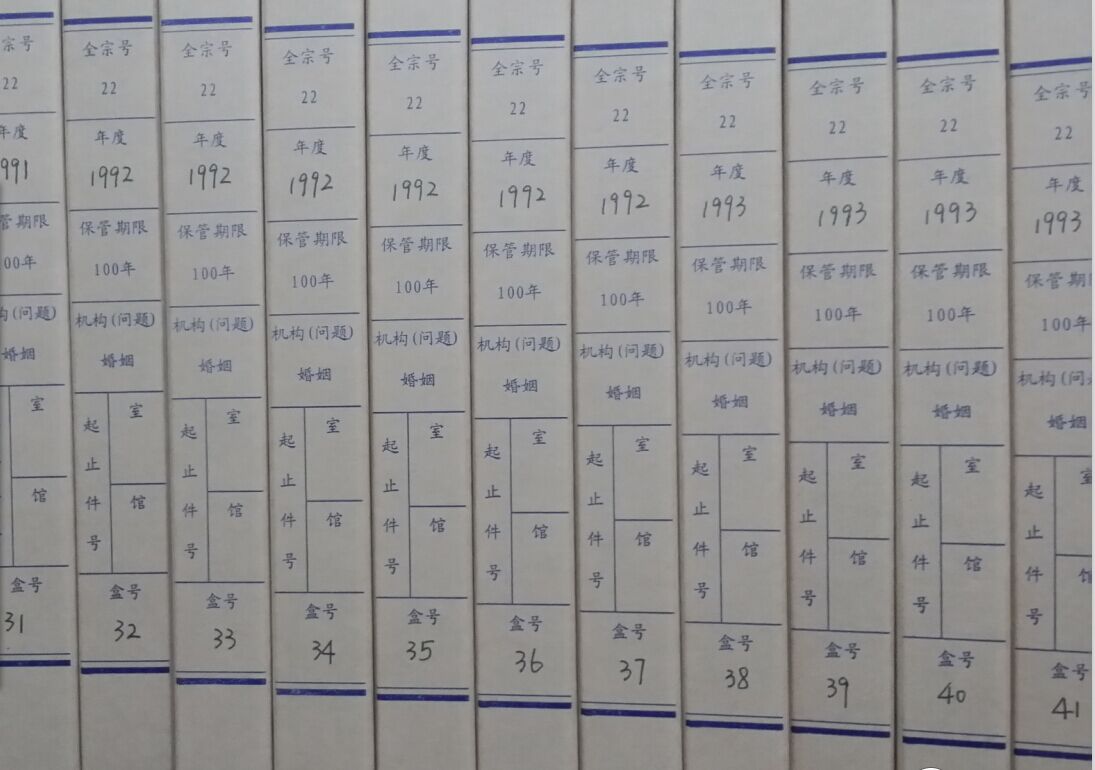 宗号
22
年度
991
管期限
00年
构(问题)
婚姻
室
馆
盒号
31
全宗号
22
年度
1992
保管期限
100年
机构(问题)
婚姻
起止件号
室
馆
盒号
32
全宗号
22
年度
1992
保管期限
100年
机构(问题)
婚姻
起止件号
室
馆
盒号
33
全宗号
22
年度
1992
保管期限
100年
机构(问题)
婚姻
起止件号
室
馆
盒号
34
全宗号
22
年度
1992
保管期限
100年
机构(问题)
婚姻
起止件号
室
馆
盒号
35
全宗号
22
年度
1992
保管期限
100年
机构(问题)
婚姻
起止件号
室
馆
盒号
36
全宗号
22
年度
1992
保管期限
100年
机构(问题)
婚姻
起止件号
室
馆
盒号
37
全宗号
22
年度
1993
保管期限
100年
机构(问题)
婚姻
起止件号
室
馆
盒号
38
全宗号
22
年度
1993
保管期限
100年
机构(问题)
婚姻
起止件号
室
馆
盒号
39
全宗号
22
年度
1993
保管期限
100年
机构(问题)
婚姻
起止件号
室
馆
盒号
40
全宗号
22
年度
1993
保管期
100年
机构(问
婚姻
起止件号
室
馆
盒号
41